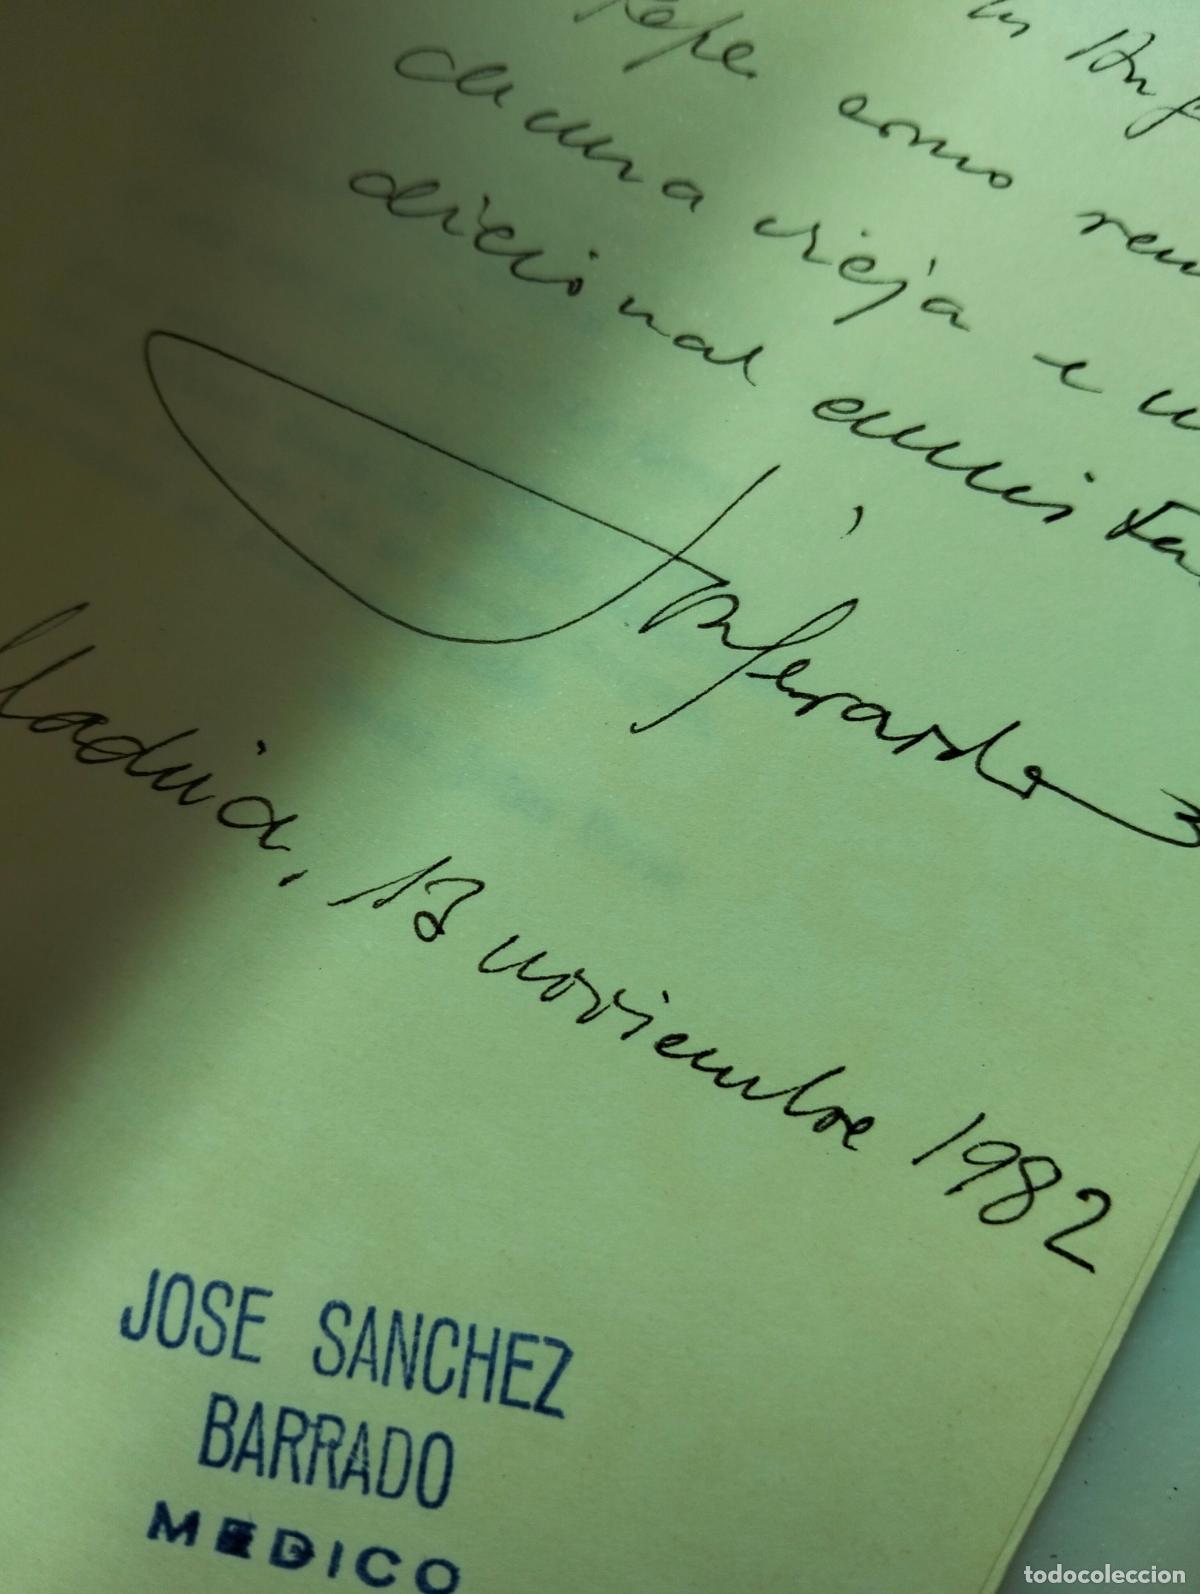 Pepe como
de una vieja e
dicional amis
Madrid, 13 noviembre 1982
JOSE SANCHEZ
BARRADO
MEDICO
todocoleccion